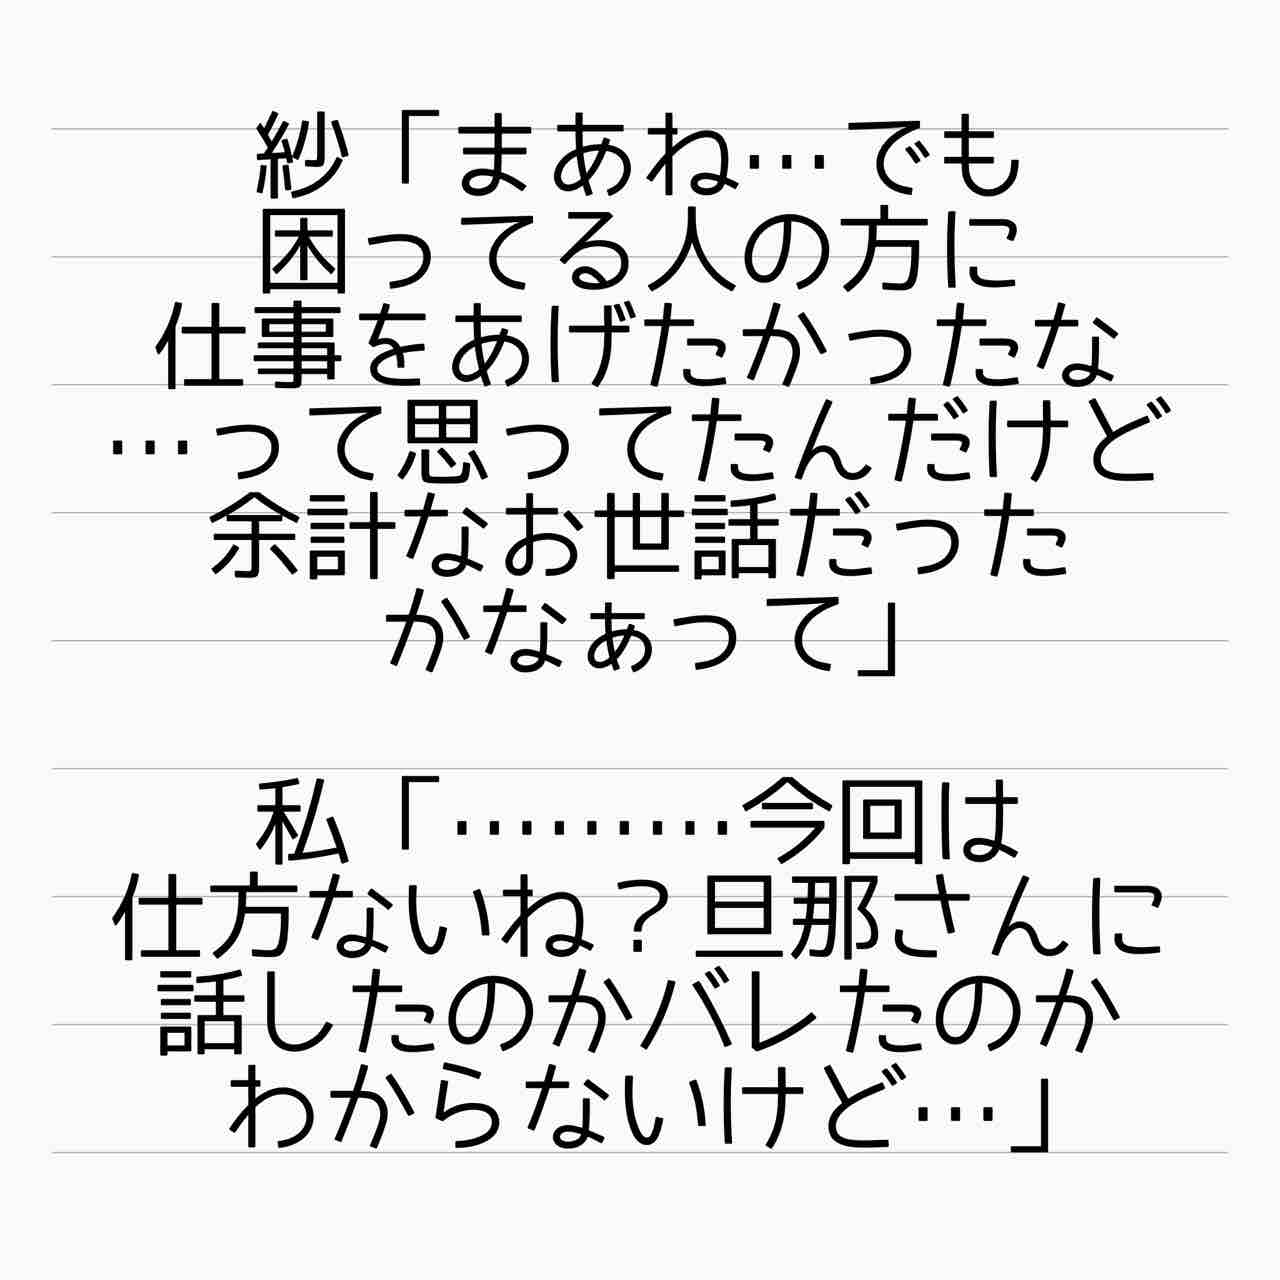 紗「まあね…でも
困ってる人の方に
仕事をあげたかったな
…って思ってたんだけど
余計なお世話だった
かなぁって」
私「………今回は
仕方ないね？旦那さんに
話したのかバレたのか
わからないけど…」